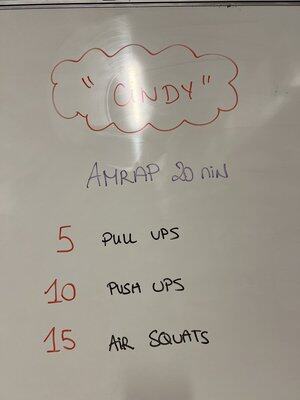 "CINDY"
AMRAP 20 MIN
5 PULL UPS
10 PUSH UPS
15 AIR SQUATS